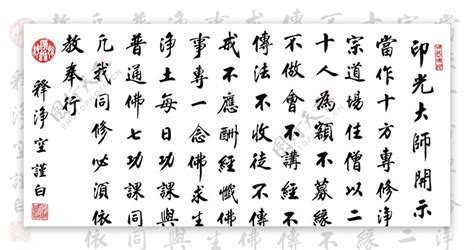 印光大師開示
當作十方專修淨
宗道場住僧以二
十人為額不募緣
不做會不講經不
傳法不收徒不傳
戒不應酬經懺佛
事專一念佛求生
淨土每日功課與
普通佛七功課同
凡我同修必須依
教奉行
釋淨空謹白